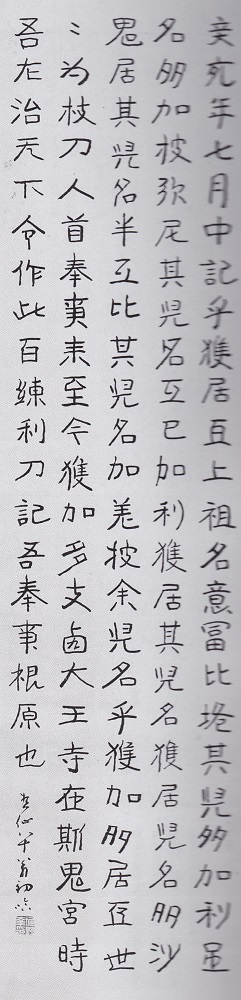 辛亥年七月中記乎獲居臣上祖名意冨比垝其児多加利足
名多加披弥尼其児名互已加利獲居其児名獲居児名多沙
鬼居其児名半互比其児名加羌披余児名乎獲加多居臣世
〻為杖刀人首奉事来至今獲加多支鹵大王寺在斯鬼宮時
吾左治天下令作此百練利刀記吾奉事根原也